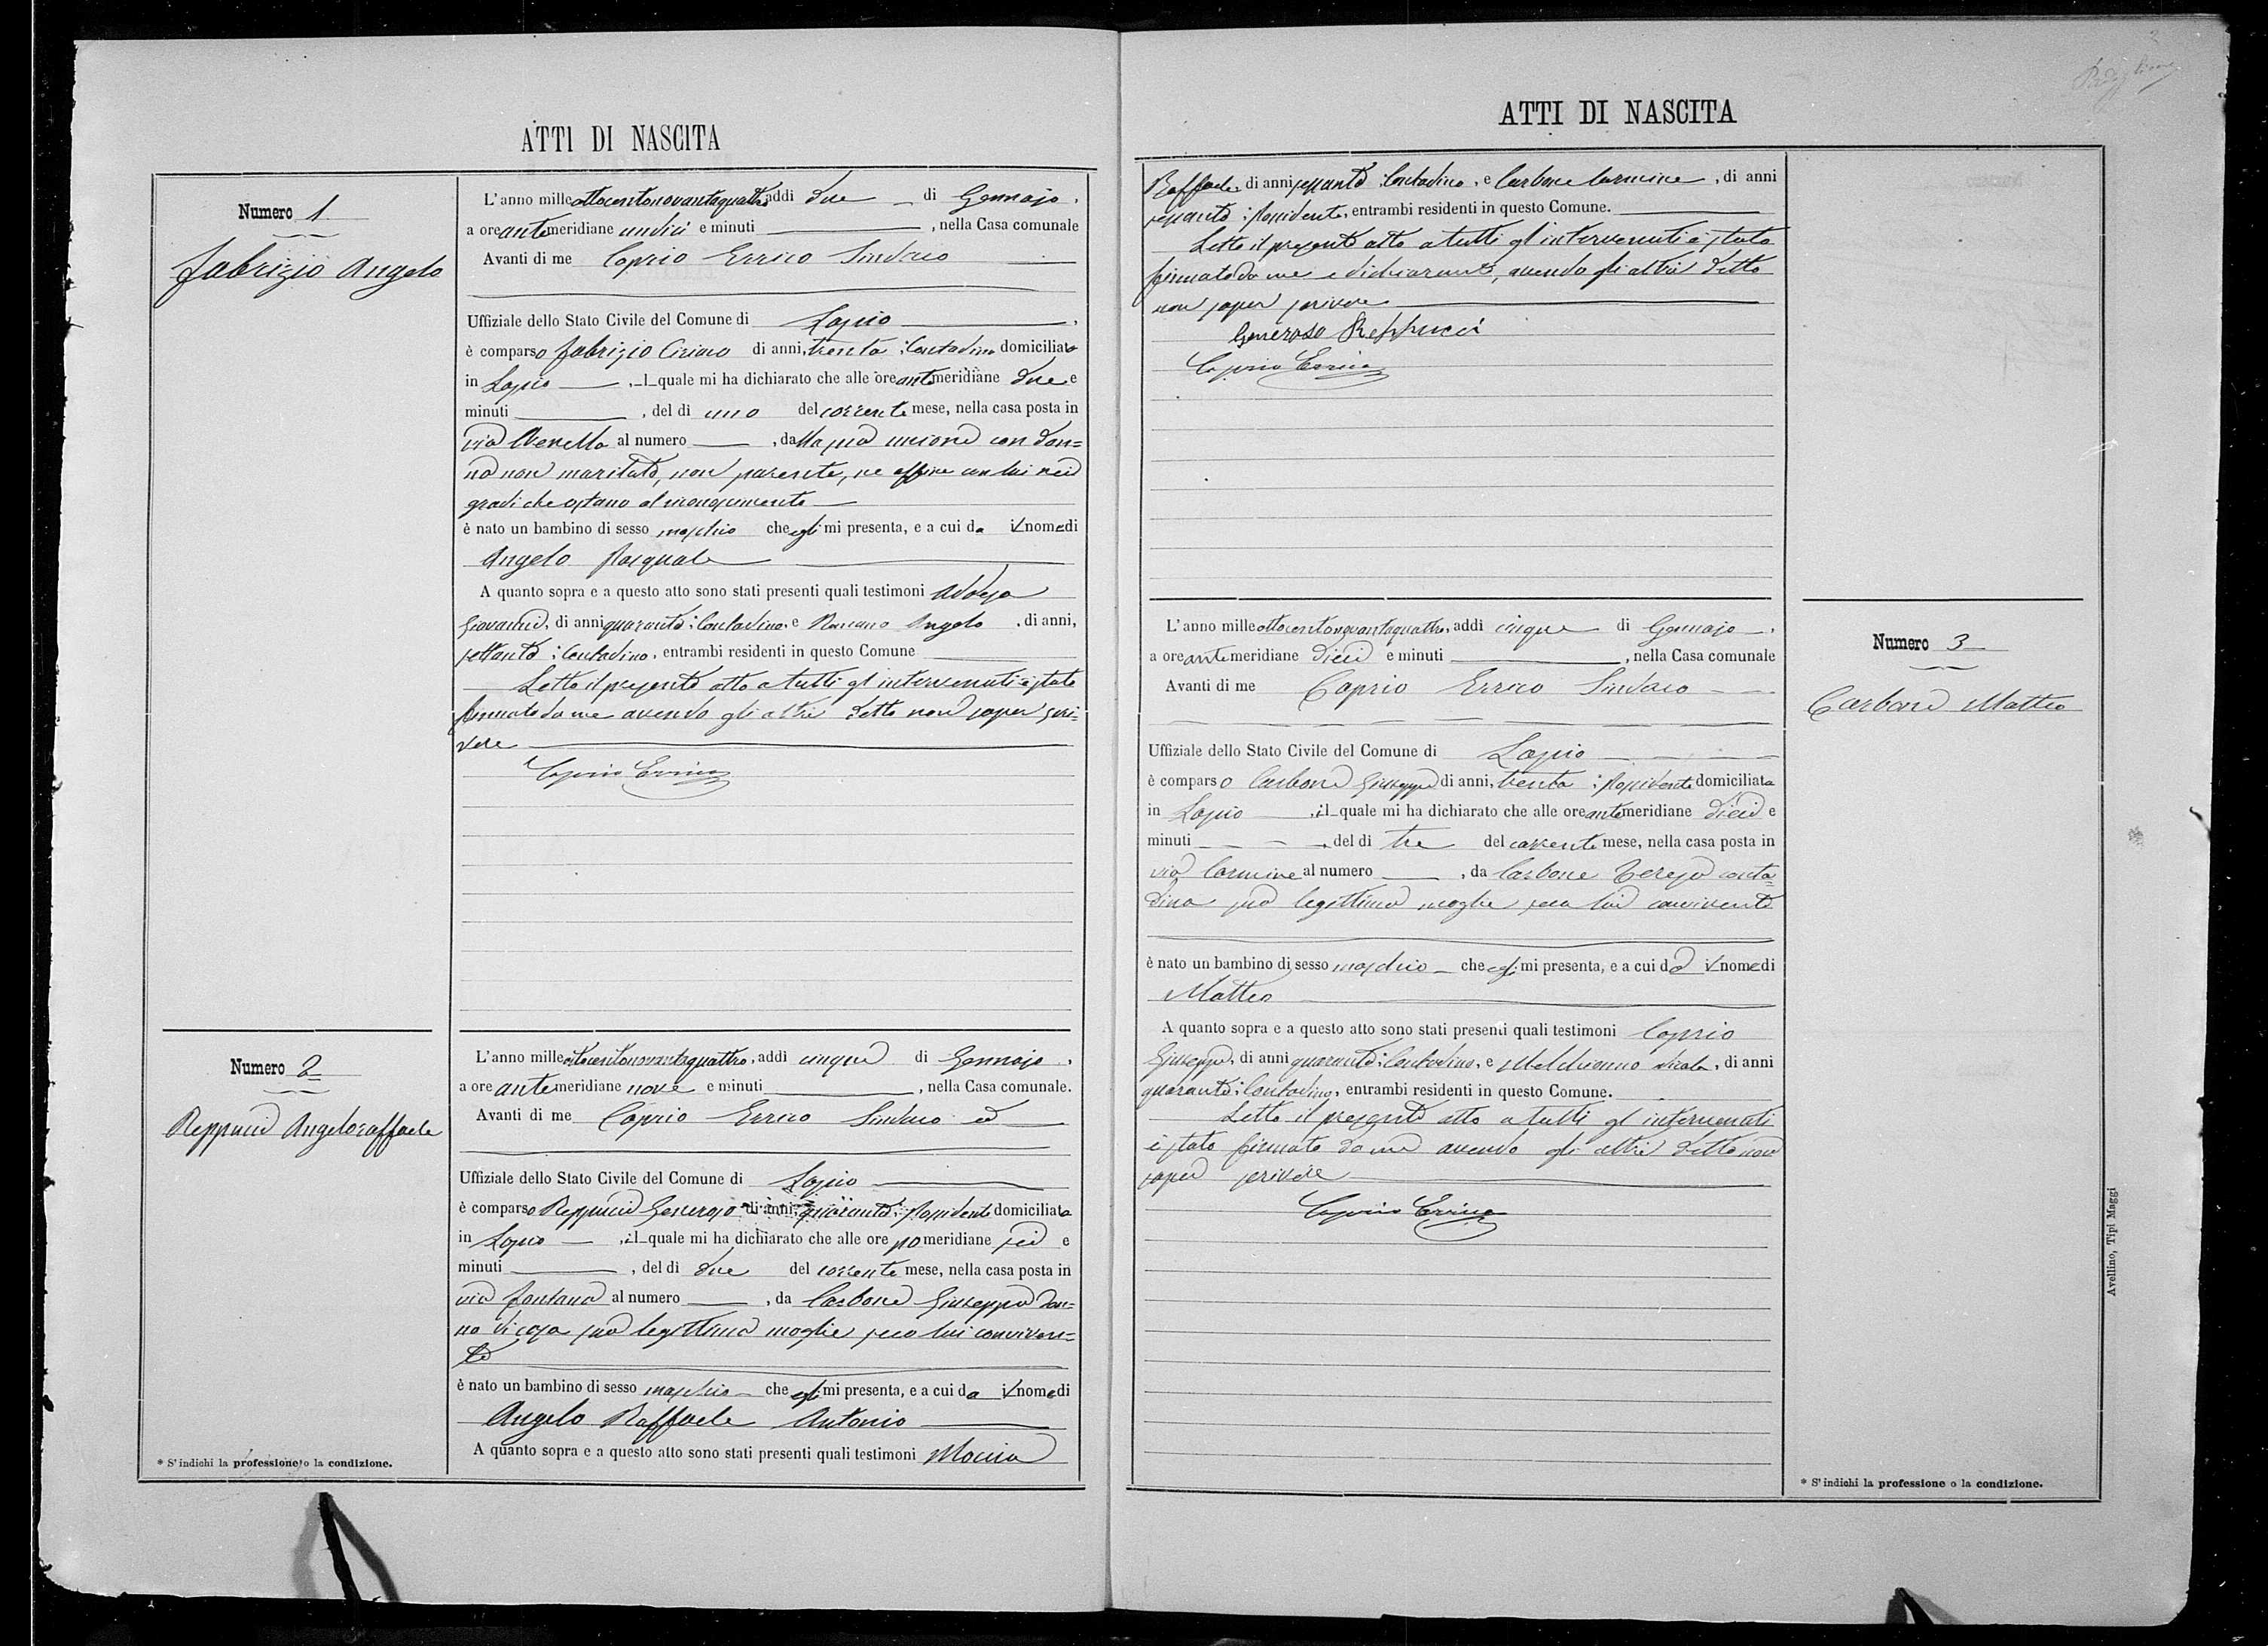 ATTI DI NASCITA
Numero 1
Fabrizio Angelo
L'anno milleottocentonovantaquattro addi due di Gennajo,
a ore antemeridiane undici e minuti, nella Casa comunale
Avanti di me Caprio Errico Sindaco
Uffiziale dello Stato Civile del Comune di Lapio,
è comparso Fabrizio Ciriaco di anni, trenta; Contadino domiciliato
in Lapio, l quale mi ha dichiarato che alle ore antemeridiane due e
minuti, del di uno del corrente mese, nella casa posta in
via al numero, dalla sua unione con don=
na non maritata, non parente, ne affine con lui nei
gradi che ostano al riconoscimento
è nato un bambino di sesso maschio che egli mi presenta, e a cui da il nome di
Angelo Pasquale
A quanto sopra e a questo atto sono stati presenti quali testimoni
Giovanni, di anni quaranta; Contadino, e Romano Angelo, di anni,
settanta; Contadino, entrambi residenti in questo Comune
Letto il presente atto a tutti gl'intervenuti è stato
firmato da me avendo gli altri detto non saper scri=
vere
Caprio Errico
Numero 2
Reppucci Angeloraffaele
L'anno milleottocentonovantaquattro, addi cinque di Gennajo,
a ore antemeridiane nove e minuti, nella Casa comunale.
Avanti di me Caprio Errico Sindaco ed
Uffiziale dello Stato Civile del Comune di Lapio
è comparso Reppucci Generoso di anni, quaranta; Possidente domiciliato
in Lapio, il quale mi ha dichiarato che alle ore pomeridiane sei e
minuti, del di due del corrente mese, nella casa posta in
via Fontana al numero, da Carbone Giuseppa don=
na di casa sua legittima moglie seco lui conviven=
te
è nato un bambino di sesso maschio che egli mi presenta, e a cui da il nome di
Angelo Raffaele Antonio
A quanto sopra e a questo atto sono stati presenti quali testimoni Moccia
* S'indichi la professione o la condizione.
2
ATTI DI NASCITA
Raffaele, di anni sessanta; Contadino, e Carbone Carmine, di anni
sessanta; Possidente, entrambi residenti in questo Comune.
Letto il presente atto a tutti gl'intervenuti è stato
firmato da me e dichiarante, avendo gli altri detto
non saper scrivere
Generoso Reppucci
Caprio Errico
L'anno milleottocentonovantaquattro, addi cinque di Gennajo,
a ore antemeridiane dieci e minuti, nella Casa comunale
Avanti di me Caprio Errico Sindaco
Uffiziale dello Stato Civile del Comune di Lapio
è comparso Carbone Giuseppe di anni, trenta; Possidente domiciliato
in Lapio, il quale mi ha dichiarato che alle ore antemeridiane dieci e
minuti, del di tre del corrente mese, nella casa posta in
via Carmine al numero, da Carbone Teresa conta=
dina sua legittima moglie seco lui convivente
è nato un bambino di sesso maschio che egli mi presenta, e a cui dà il nome di
Matteo
A quanto sopra e a questo atto sono stati presenti quali testimoni Caprio
Giuseppe, di anni quaranta; Contadino, e Melchionno Nicola, di anni
quaranta; Contadino, entrambi residenti in questo Comune.
Letto il presente atto a tutti gl'intervenuti
è stato firmato da me avendo gli altri detto non
saper scrivere
Caprio Errico
Numero 3
Carbone Matteo
* S'indichi la professione o la condizione.
Avellino, Tipi Maggi